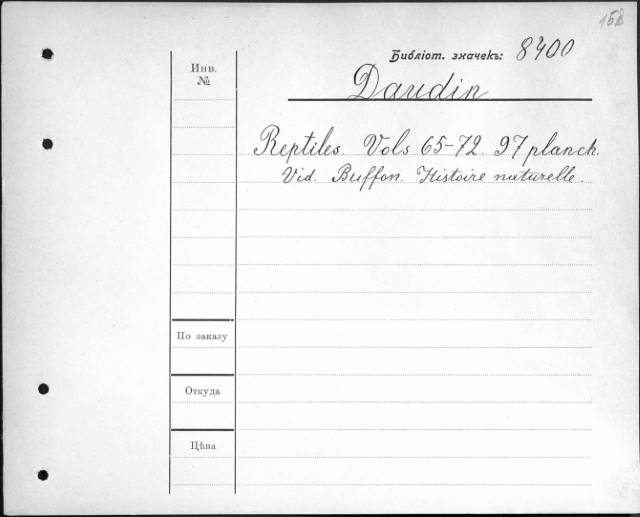 158
Библіот. значекъ: 8400
Инв.
№
Daudin
Reptiles. Vols 65-72. 97 planch.
Vid. Buffon. Histoire naturelle.
По заказу
Откуда
Цѣна